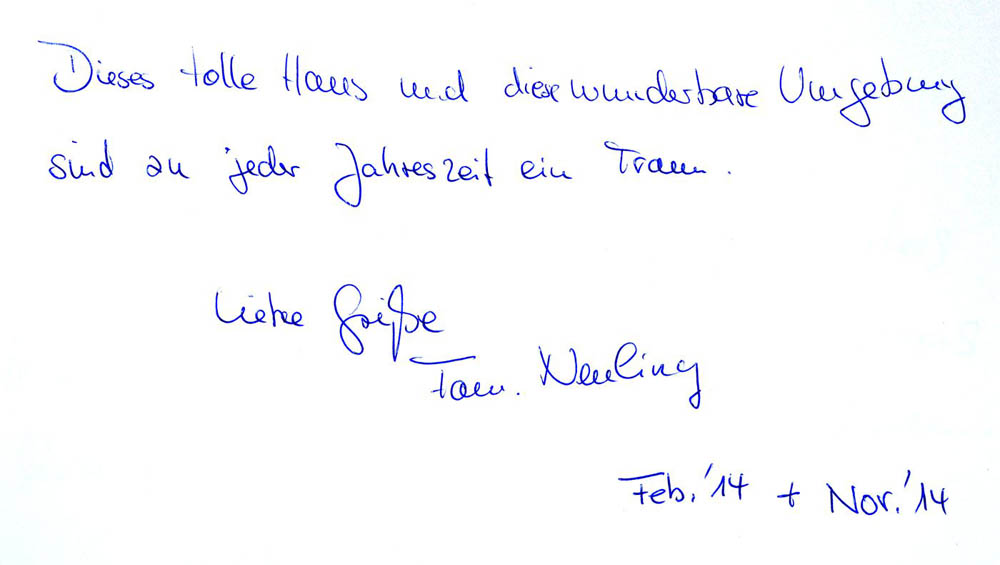 Dieses tolle Haus und diese wunderbare Umgebung
sind zu jeder Jahreszeit ein Traum.
Liebe Grüße
Fam. Neuling
Feb. '14 + Nov. '14